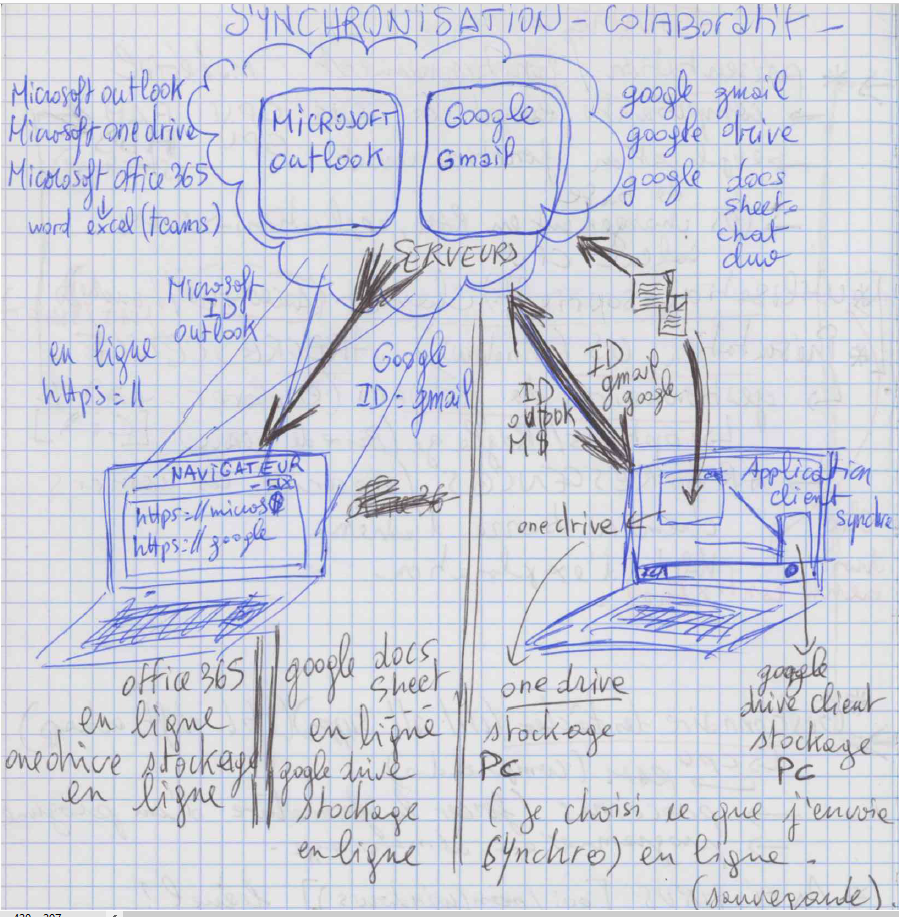 SYNCHRONISATION - ColABoratif -
Microsoft outlook
Microsoft one drive
Microsoft office 365
word excel (teams)
MiCROSOFT
outlook
Google
Gmail
google gmail
google drive
google docs
sheet
chat
duo
SERVEURS
Microsoft
ID
outlook
en ligne
https=//
Google
ID = gmail
ID
outlook
M$
ID
gmail
google
NAViGATEUR
https=//micros$
https=//google
one drive
Application
client
Synchro
office 365
en ligne
onedrive stockage
en ligne
google docs
sheet
en ligne
google drive
stockage
en ligne
one drive
stockage
PC
google
drive client
stockage
PC
(je choisi ce que j'envoie
Synchro) en ligne -
(sauvegarde).